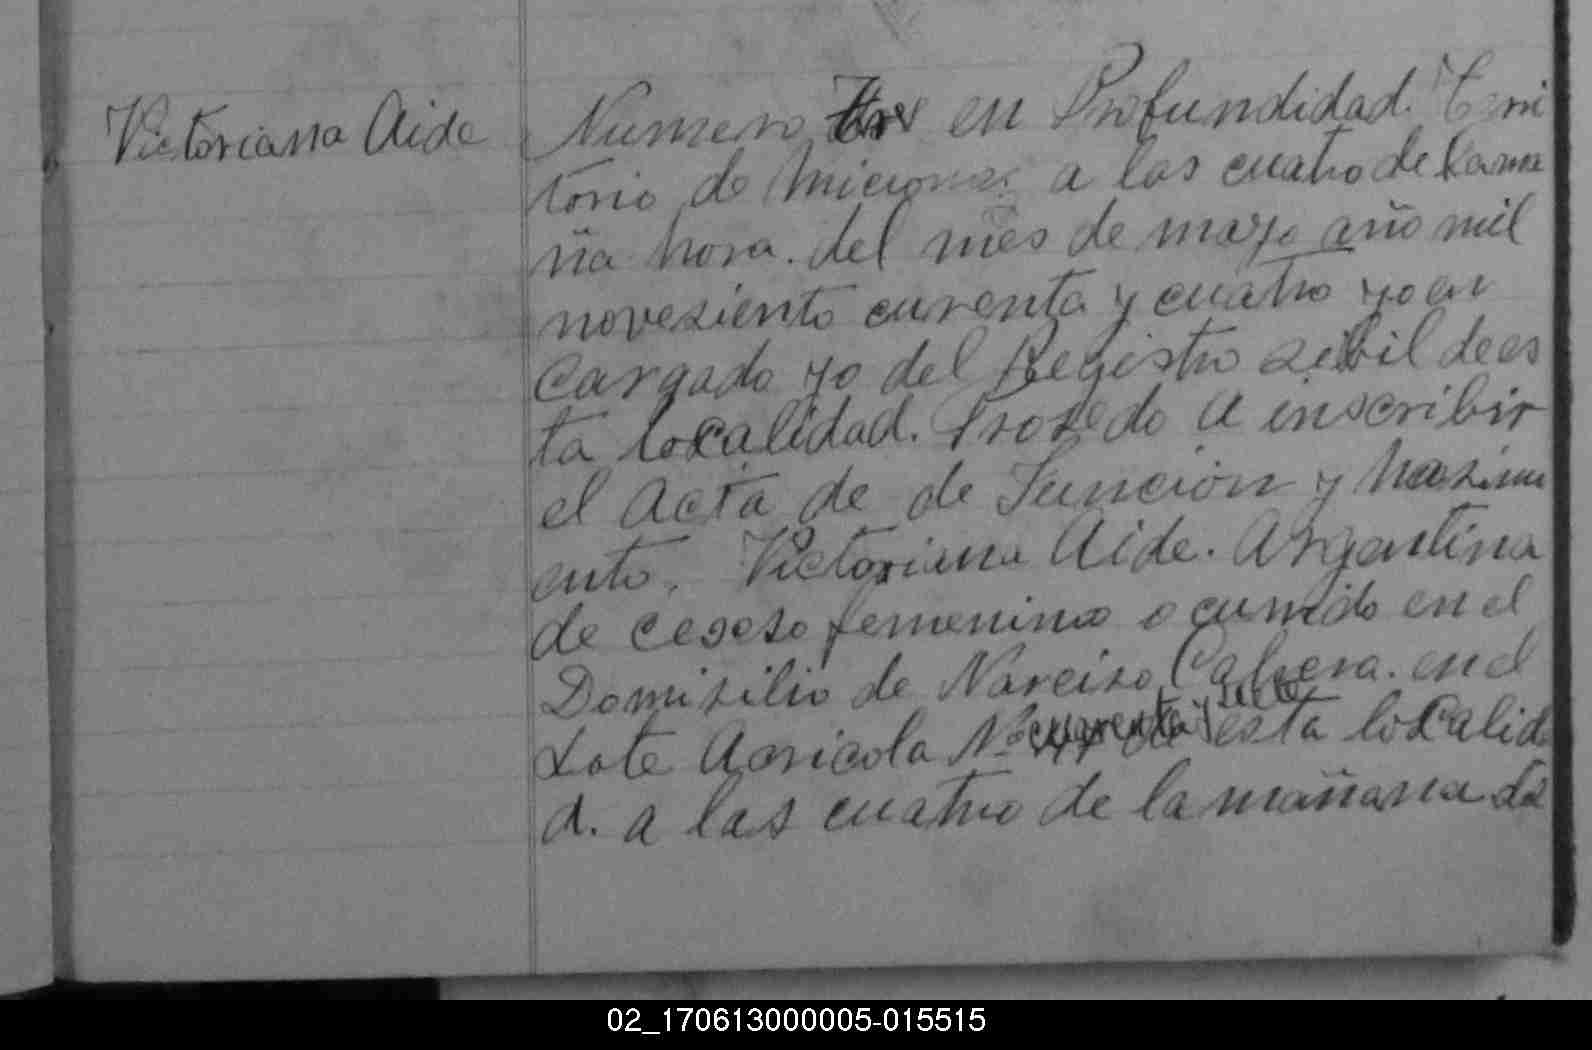 Victoriana Aide
Numero Tres en Profundidad. Terri
torio de Miciones a las cuatro de la ma
ña hora. del mes de mayo año mil
novesiento curenta y cuatro yo en
cargado yo del Registro sebil de es
ta localidad. Prosedo a inscribir
el Acta de de Funcion y Nasimi
ento. Victoriana Aide. Argentina
de cesoso femenino ocurrido en el
Domisilio de Narciso Cabrera. en el
Lote Agricola Nº cuarenta y siete de esta localid
d. a las cuatro de la mañana del
02_170613000005-015515